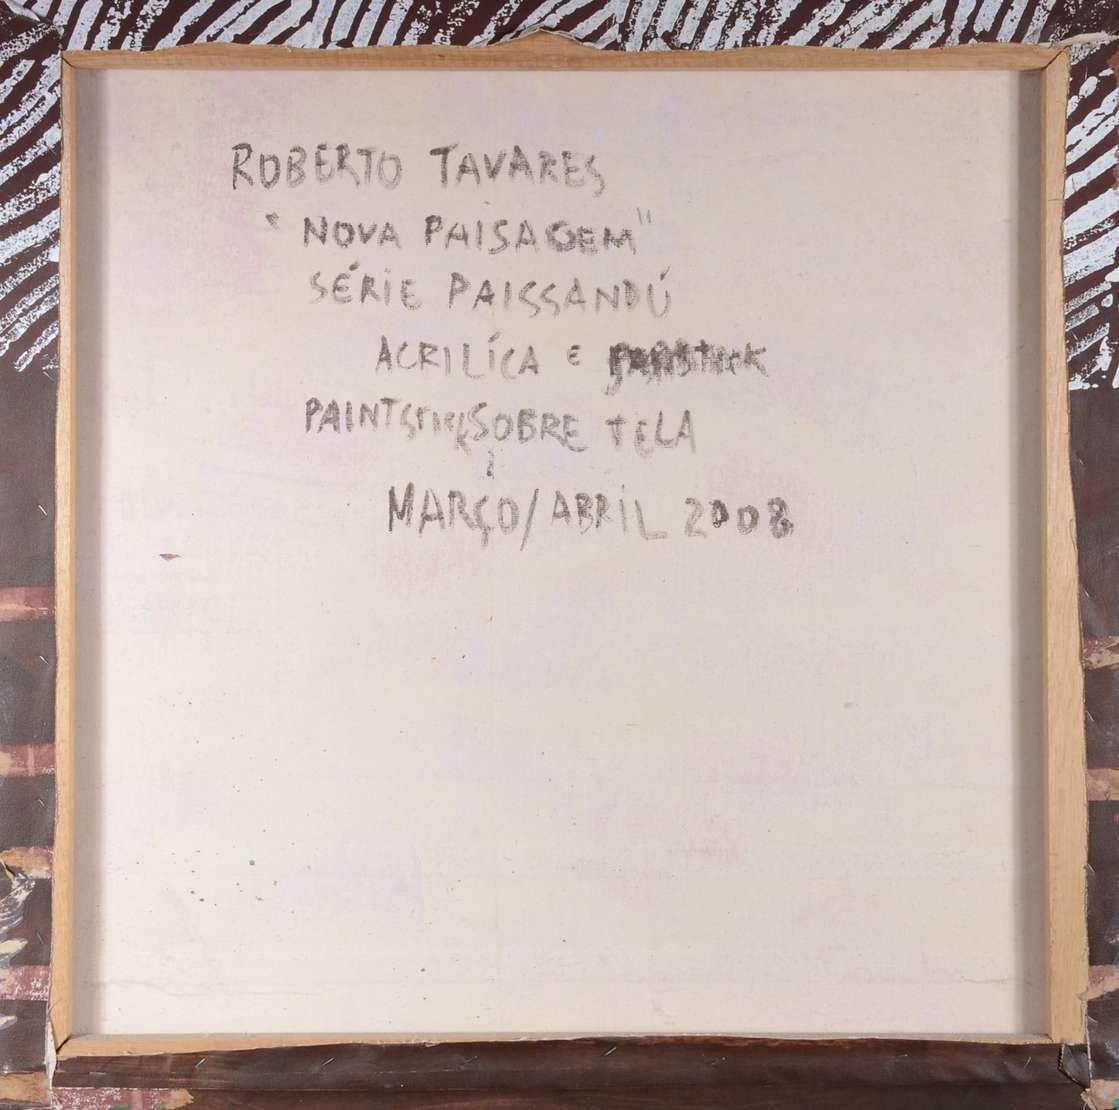 ROBERTO TAVARES
"NOVA PAISAGEM"
SÉRIE PAISSANDÚ
ACRILÍCA E
PAINTSTICK SOBRE TELA
MARÇO/ABRIL 2008